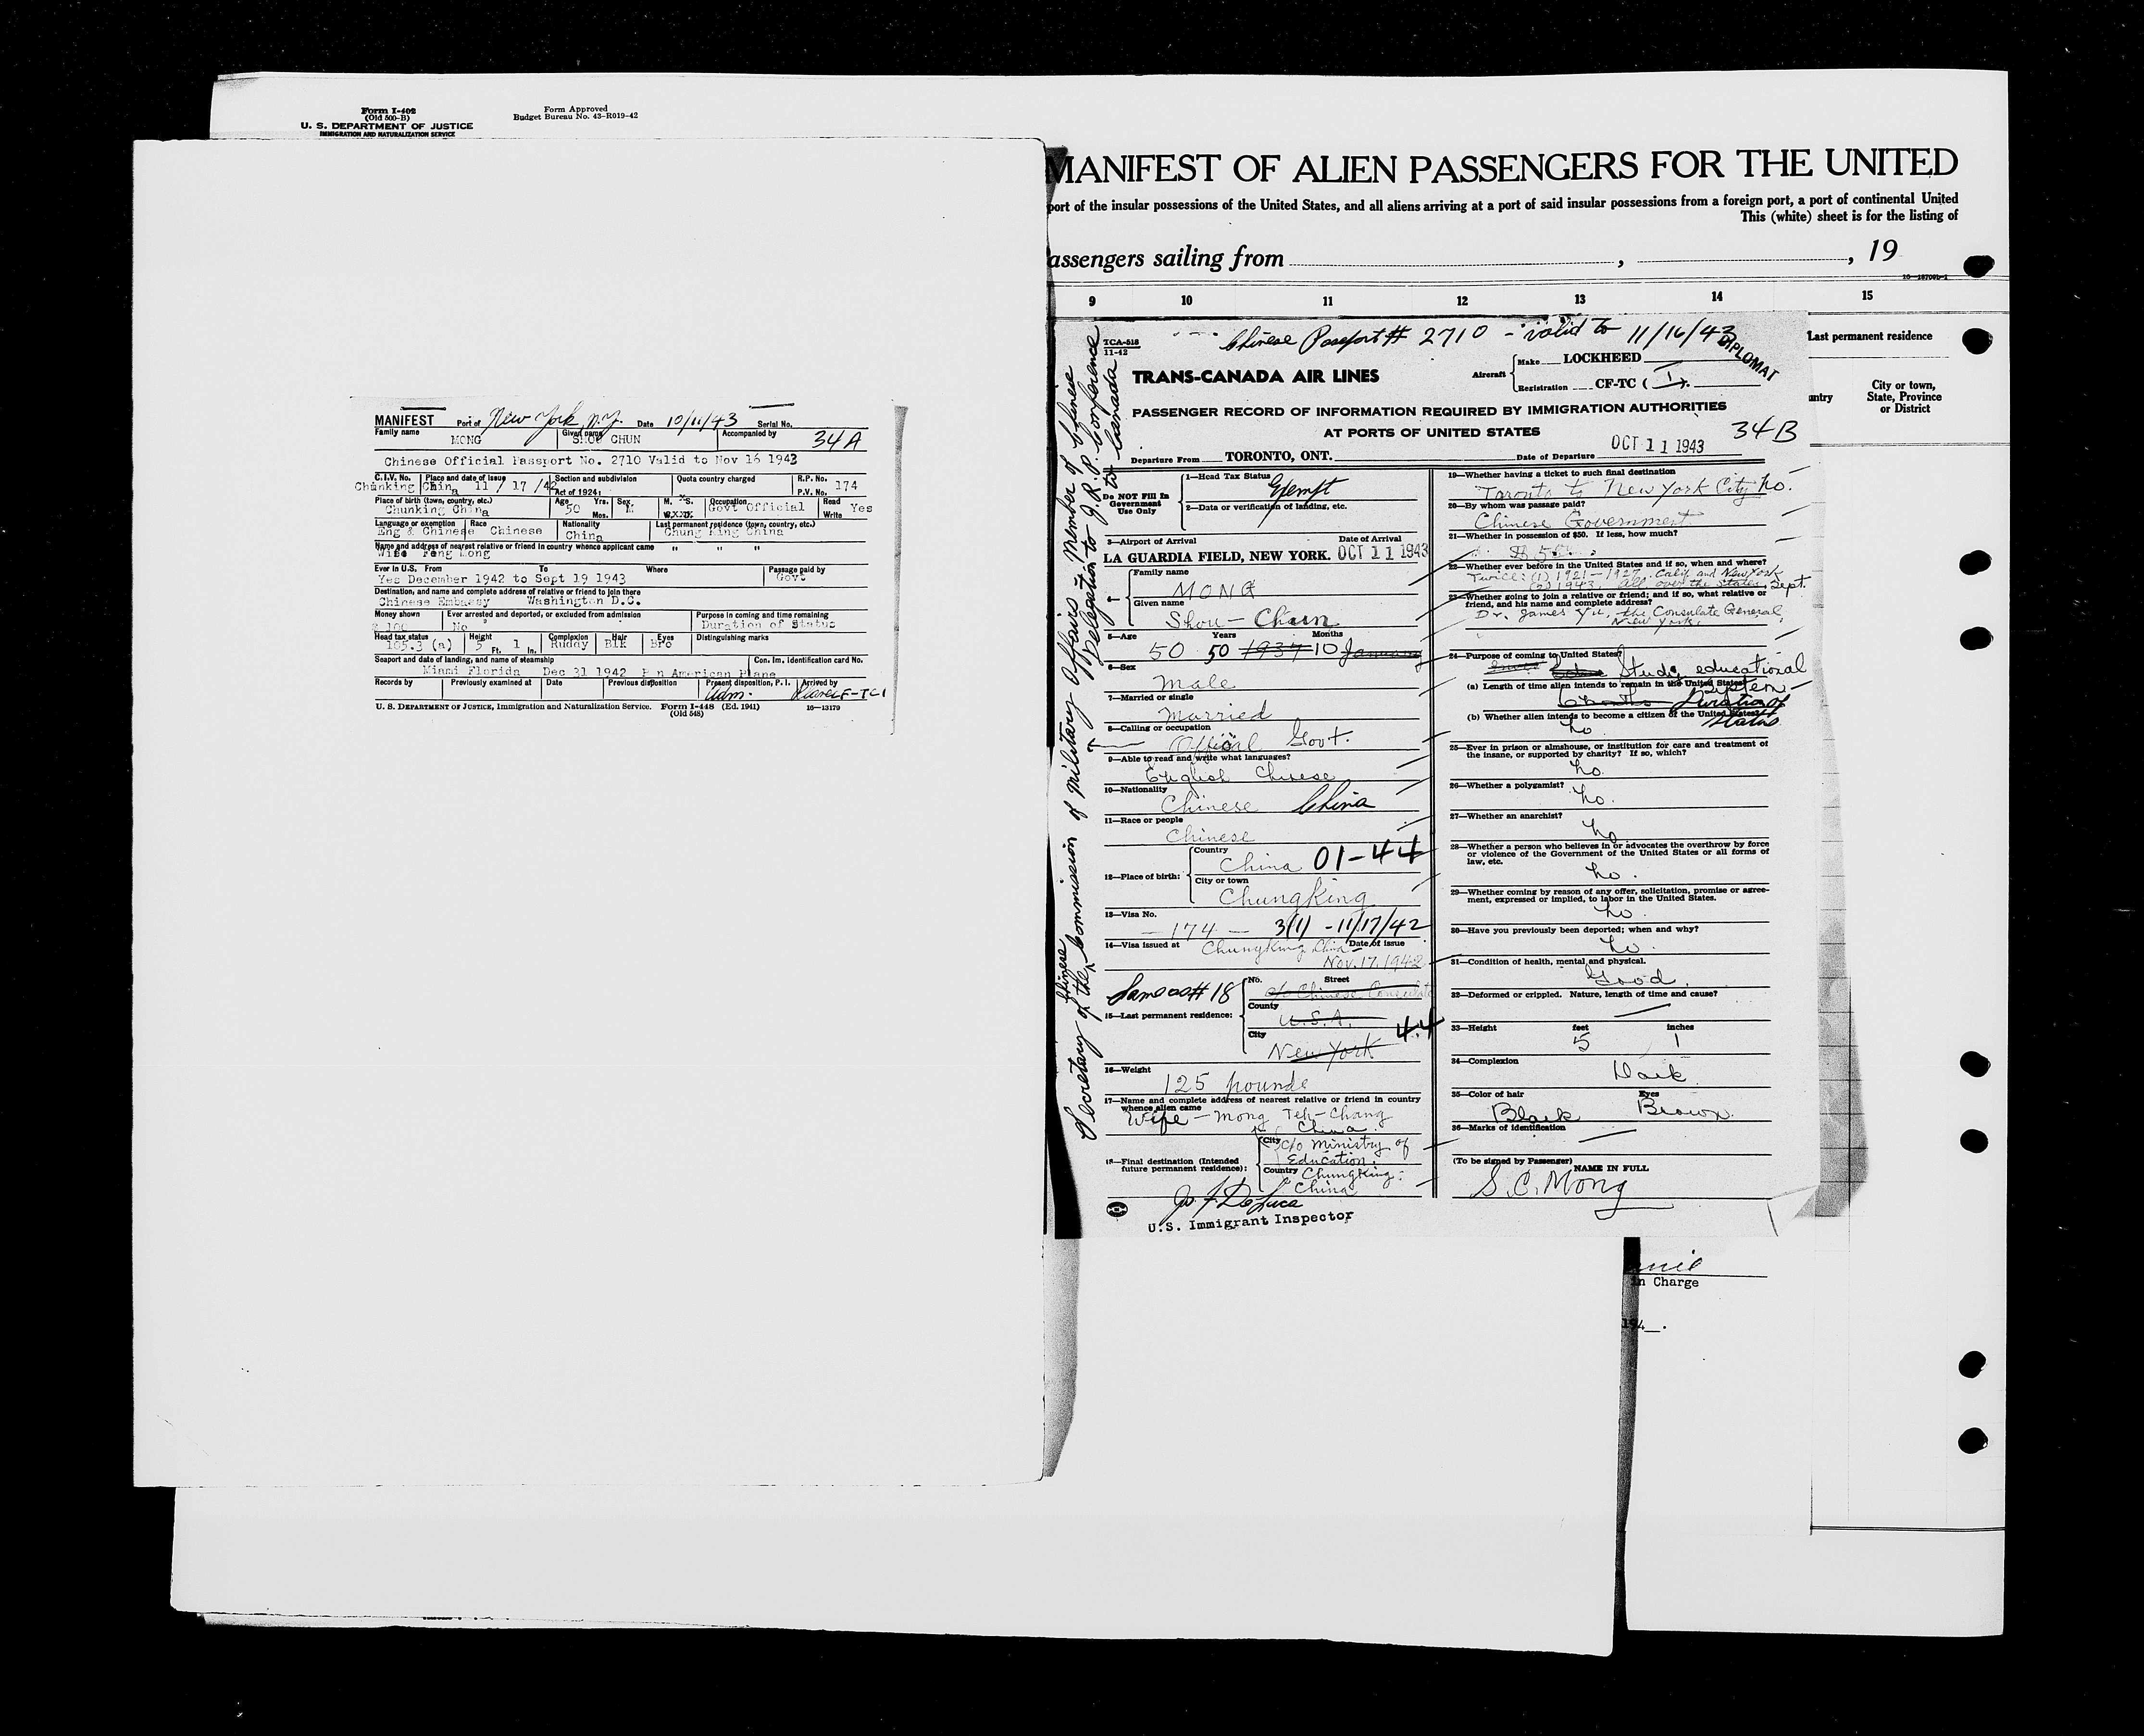 Form I-402
(Old 500-B)
U. S. DEPARTMENT OF JUSTICE
IMMIGRATION AND NATURALIZATION SERVICE
Form Approved
Budget Bureau No. 43-R019-42
MANIFEST OF ALIEN PASSENGERS FOR THE UNITED
port of the insular possessions of the United States, and all aliens arriving at a port of said insular possessions from a foreign port, a port of continental United
This (white) sheet is for the listing of
assengers sailing from , , 19
9 10 11 12 13 14 15
Last permanent residence
untry
City or town,
State, Province
or District
MANIFEST Port of New York, N.Y. Date 10/11/43 Serial No.
Family name Given name Accompanied by
MONG SHOU CHUN 34A
Chinese Official Passport No. 2710 Valid to Nov 16 1943
C.I.V. No. Place and date of issue Section and subdivision Quota country charged R.P. No.
Chunking China 11 / 17 /42 Act of 1924: P.V. No. 174
Place of birth (town, country, etc.) Age Yrs. Sex M. S. Occupation Read
Chunking China 50 Mos. M Govt Official Write Yes
Language or exemption Race Nationality Last permanent residence (town, country, etc.)
Eng & Chinese Chinese China Chung King China
Name and address of nearest relative or friend in country whence applicant came " " "
Wife Feng Mong
Ever in U.S. From To Where Passage paid by
Yes December 1942 to Sept 19 1943 Govt
Destination, and name and complete address of relative or friend to join there
Chinese Embassy Washington D.C.
Money shown Ever arrested and deported, or excluded from admission Purpose in coming and time remaining
100 No Duration of Status
Head tax status Height Complexion Hair Eyes Distinguishing marks
105.3 (a) 5 Ft. 1 In. Ruddy Blk Bro
Seaport and date of landing, and name of steamship Con. Im. identification card No.
Miami Florida Dec 31 1942 Pan American Plane
Records by Previously examined at Date Previous disposition Present disposition, P. I. Arrived by
Adm. Plane CF-TCI
U. S. DEPARTMENT OF JUSTICE, Immigration and Naturalization Service. Form I-448 (Ed. 1941) 16—13179
(Old 548)
Secretary of the Chinese Commission of Military Affairs. Member of Chinese
Delegation to I.P.R. Conference
to Canada
TCA-518
11-42
Chinese Passport # 2710 - valid to 11/16/43
DIPLOMAT
TRANS-CANADA AIR LINES
Aircraft Make LOCKHEED
Registration CF-TC ( I ).
PASSENGER RECORD OF INFORMATION REQUIRED BY IMMIGRATION AUTHORITIES
AT PORTS OF UNITED STATES
34B
Departure From TORONTO, ONT. Date of Departure OCT 11 1943
Do NOT Fill In
Government
Use Only
1—Head Tax Status Exempt
2—Data or verification of landing, etc.
3—Airport of Arrival Date of Arrival
LA GUARDIA FIELD, NEW YORK. OCT 11 1943
4—
Family name
MONG
Given name
Shou-Chun
5—Age Years Months
50 50 1937 10 January
6—Sex
Male
7—Married or single
Married
8—Calling or occupation
Official Govt.
9—Able to read and write what languages?
English Chinese
10—Nationality
Chinese China
11—Race or people
Chinese
12—Place of birth:
Country
China 01-44
City or town
Chungking
13—Visa No.
—174— 3(1) -11/17/42
14—Visa issued at Chungking China Date of issue
Nov. 17, 1942
Same as # 18
15—Last permanent residence:
No. Street
c/o Chinese Consulate
County
U.S.A.
City 44
New York
16—Weight
125 pounds
17—Name and complete address of nearest relative or friend in country
whence alien came
Wife - Mong Teh-Chang
China.
18—Final destination (Intended
future permanent residence):
City c/o Ministry of
Education.
Country Chungking
China
U.S. Immigrant Inspector
19—Whether having a ticket to such final destination
Toronto to New York City No.
20—By whom was passage paid?
Chinese Government
21—Whether in possession of $50. If less, how much?
22—Whether ever before in the United States and if so, when and where?
Twice: (1) 1921-1927, Calif. and New York
(2) 1943 all over the States, Sept.
23—Whether going to join a relative or friend; and if so, what relative or
friend, and his name and complete address?
Dr. James Yu, the Consulate General,
New York.
24—Purpose of coming to United States?
Study educational
system
(a) Length of time alien intends to remain in the United States?
6 months Duration of
status
(b) Whether alien intends to become a citizen of the United States?
No
25—Ever in prison or almshouse, or institution for care and treatment of
the insane, or supported by charity? If so, which?
No.
26—Whether a polygamist?
No.
27—Whether an anarchist?
No
28—Whether a person who believes in or advocates the overthrow by force
or violence of the Government of the United States or all forms of
law, etc.
No.
29—Whether coming by reason of any offer, solicitation, promise or agree-
ment, expressed or implied, to labor in the United States.
No.
30—Have you previously been deported; when and why?
No.
31—Condition of health, mental and physical.
Good.
32—Deformed or crippled. Nature, length of time and cause?
33—Height feet inches
5 1
34—Complexion
Dark
35—Color of hair Eyes
Black Brown.
36—Marks of identification
(To be signed by Passenger) NAME IN FULL
S. C. Mong
in Charge
194_.